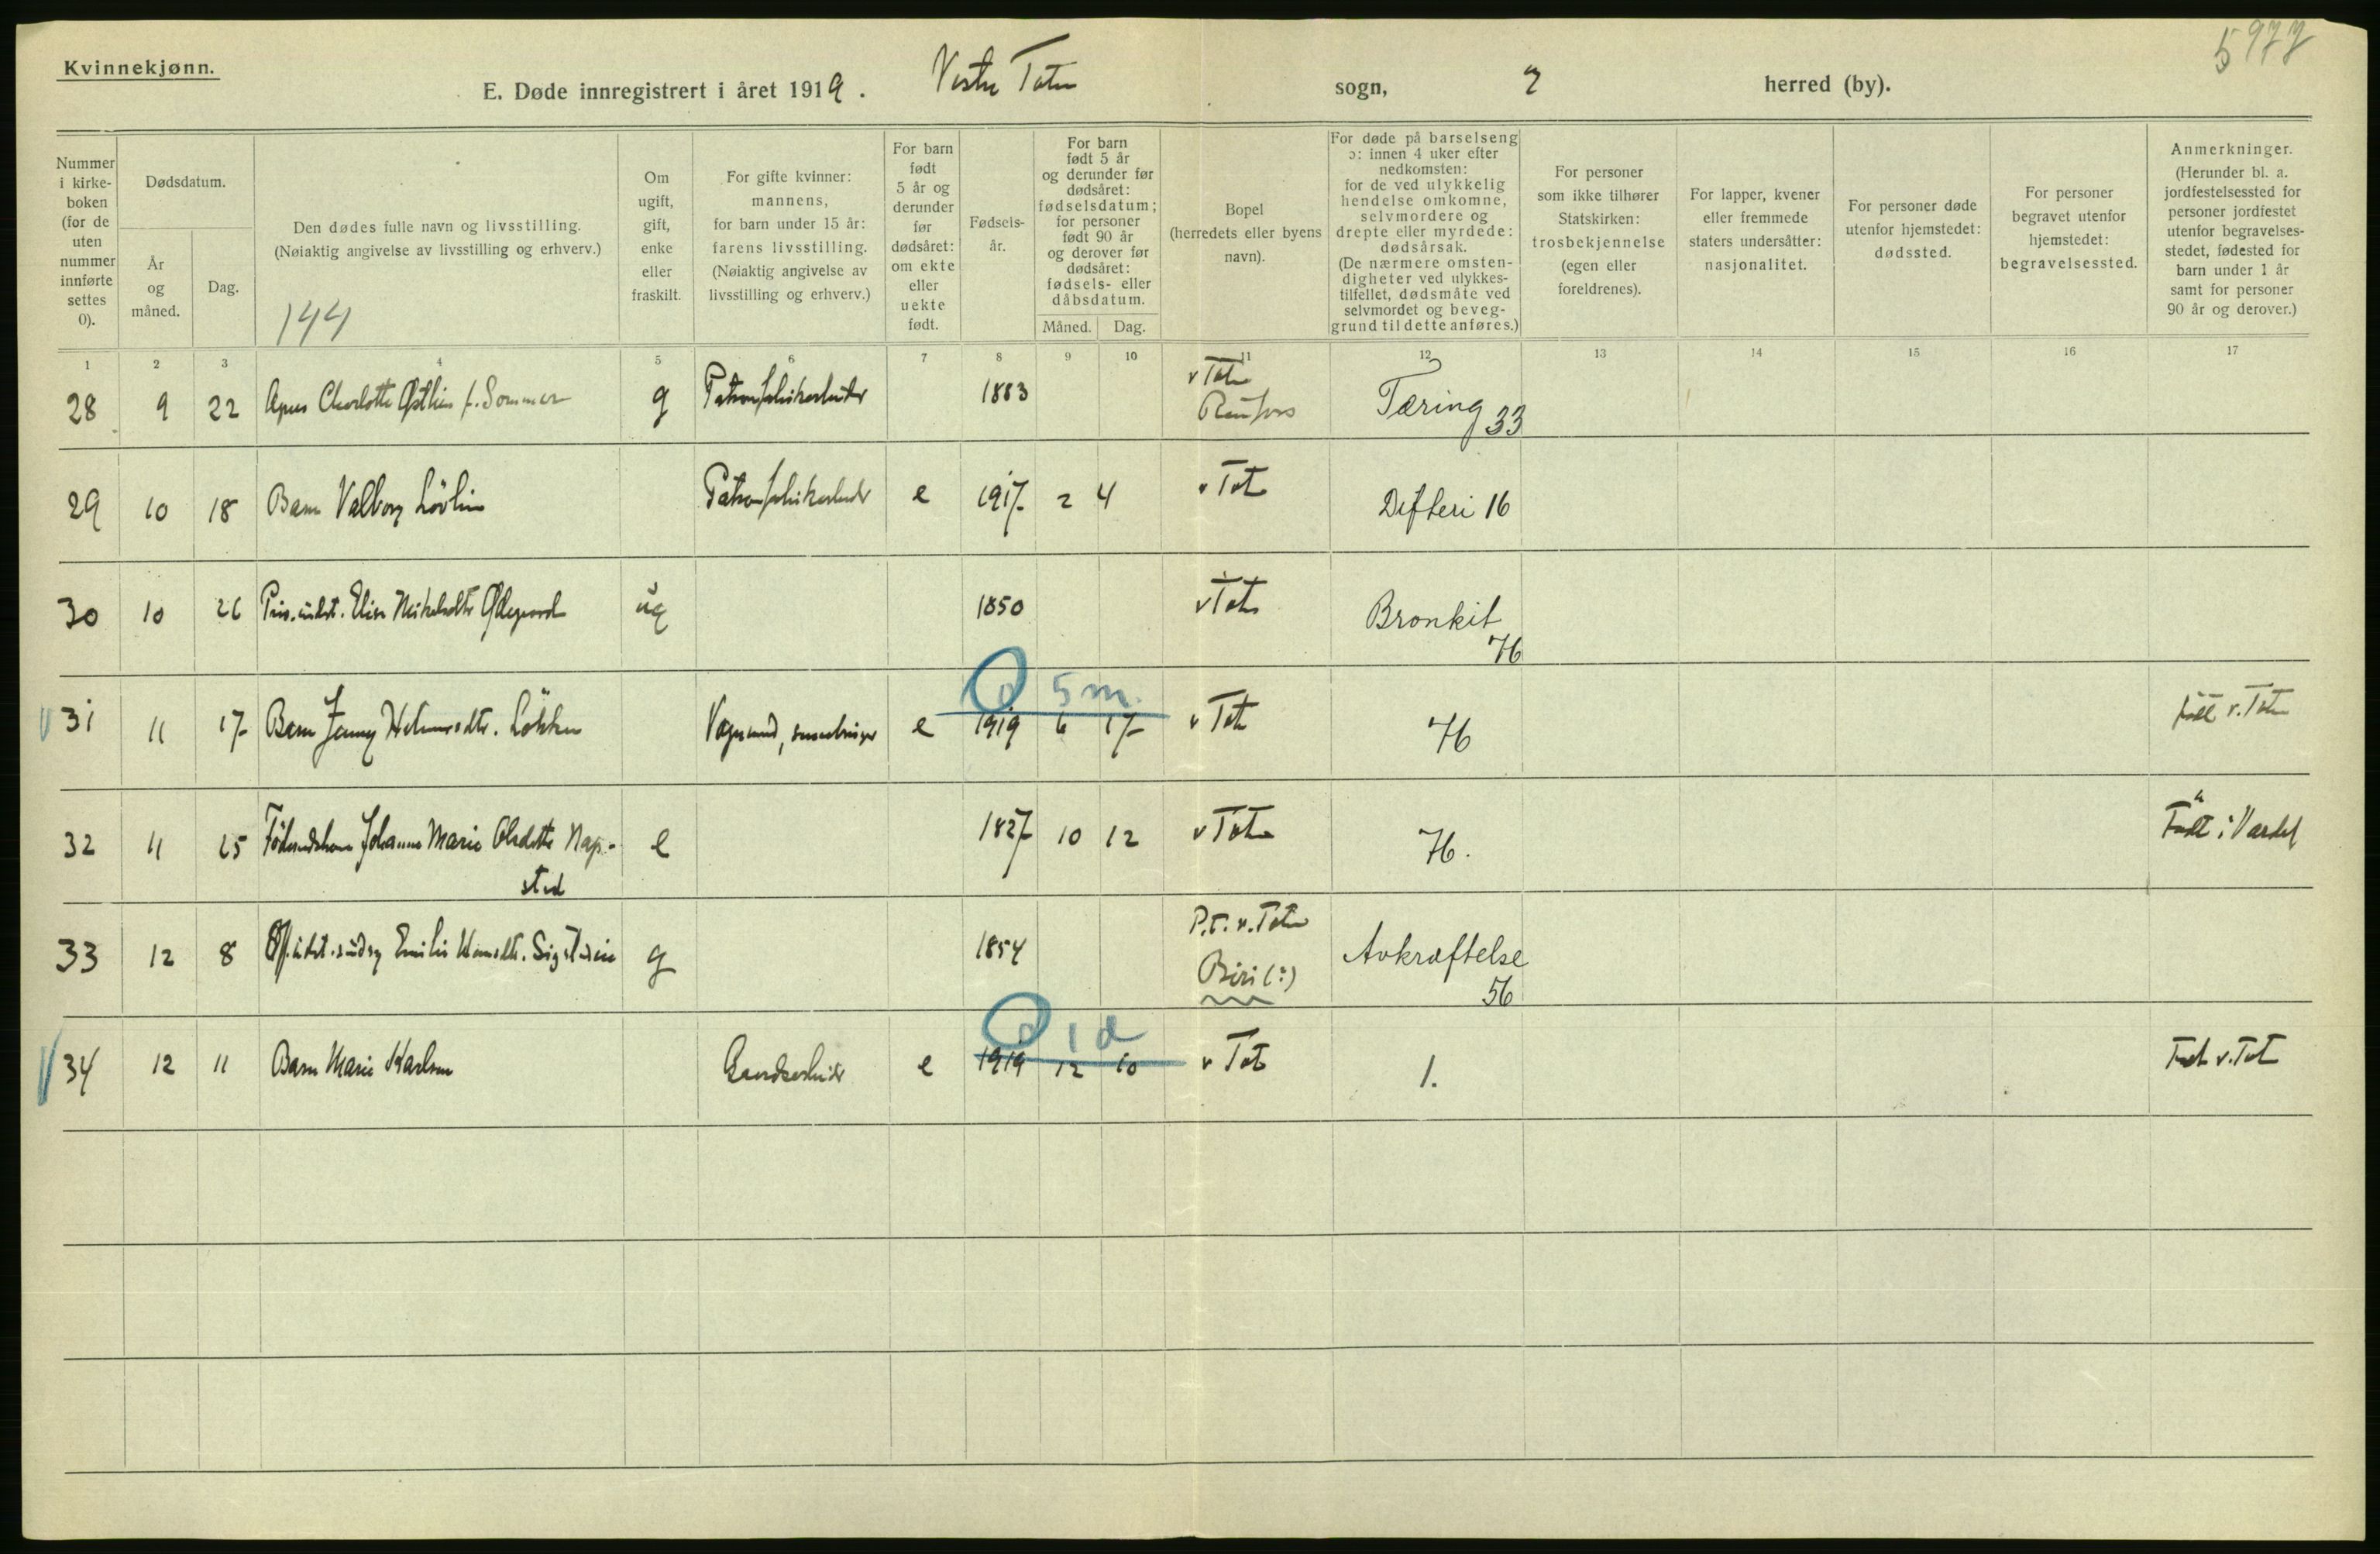 5977
Kvinnekjønn.
E. Døde innregistrert i året 1919. Vestre Toten sogn, herred (by).
Nummer i kirke- boken (for de uten nummer innførte settes 0).
Dødsdatum.
År og måned.
Dag.
Den dødes fulle navn og livsstilling.
(Nøiaktig angivelse av livsstilling og erhverv.)
144
Om ugift, gift, enke eller fraskilt.
For gifte kvinner: mannens, for barn under 15 år: farens livsstilling.
(Nøiaktig angivelse av livsstilling og erhverv.)
For barn født 5 år og derunder før dødsåret: om ekte eller uekte født.
Fødsels- år.
For barn født 5 år og derunder før dødsåret: fødselsdatum; for personer født 90 år og derover før dødsåret: fødsels- eller dåbsdatum.
Måned. Dag.
Bopel (herredets eller byens navn).
For døde på barselseng ɔ: innen 4 uker efter nedkomsten: for de ved ulykkelig hendelse omkomne, selvmordere og drepte eller myrdede: dødsårsak.
(De nærmere omsten- digheter ved ulykkes- tilfellet, dødsmåte ved selvmordet og beveg- grund til dette anføres.)
For personer som ikke tilhører Statskirken: trosbekjennelse (egen eller foreldrenes).
For lapper, kvener eller fremmede staters undersåtter: nasjonalitet.
For personer døde utenfor hjemstedet: dødssted.
For personer begravet utenfor hjemstedet: begravelsessted.
Anmerkninger.
(Herunder bl. a. jordfestelsessted for personer jordfestet utenfor begravelses- stedet, fødested for barn under 1 år samt for personer 90 år og derover.)
1 2 3 4 5 6 7 8 9 10 11 12 13 14 15 16 17
28 9 22 Charlotte f. Sommer g 1883 v Toten Raufoss Tæring 33
29 10 18 Barn Valborg Lövlien e 1917 2 4 v Toten Difteri 16
30 10 26 Ødegaard ug 1850 v Toten Bronkit 76
5 m.
31 11 17 Barn Jenny Løkken e 1919 6 17 v Toten 76 født v. Toten
32 11 25 Johanne Marie Olsdatter e 1827 10 12 v Toten 76. Født i Vardal
33 12 8 Emilie g 1854 P.t. v. Toten Biri (?) Avkræftelse 56
1 d
34 12 11 Barn Marie Karlsen Gaardsarbeider e 1919 12 10 v Toten 1. Født v. Toten